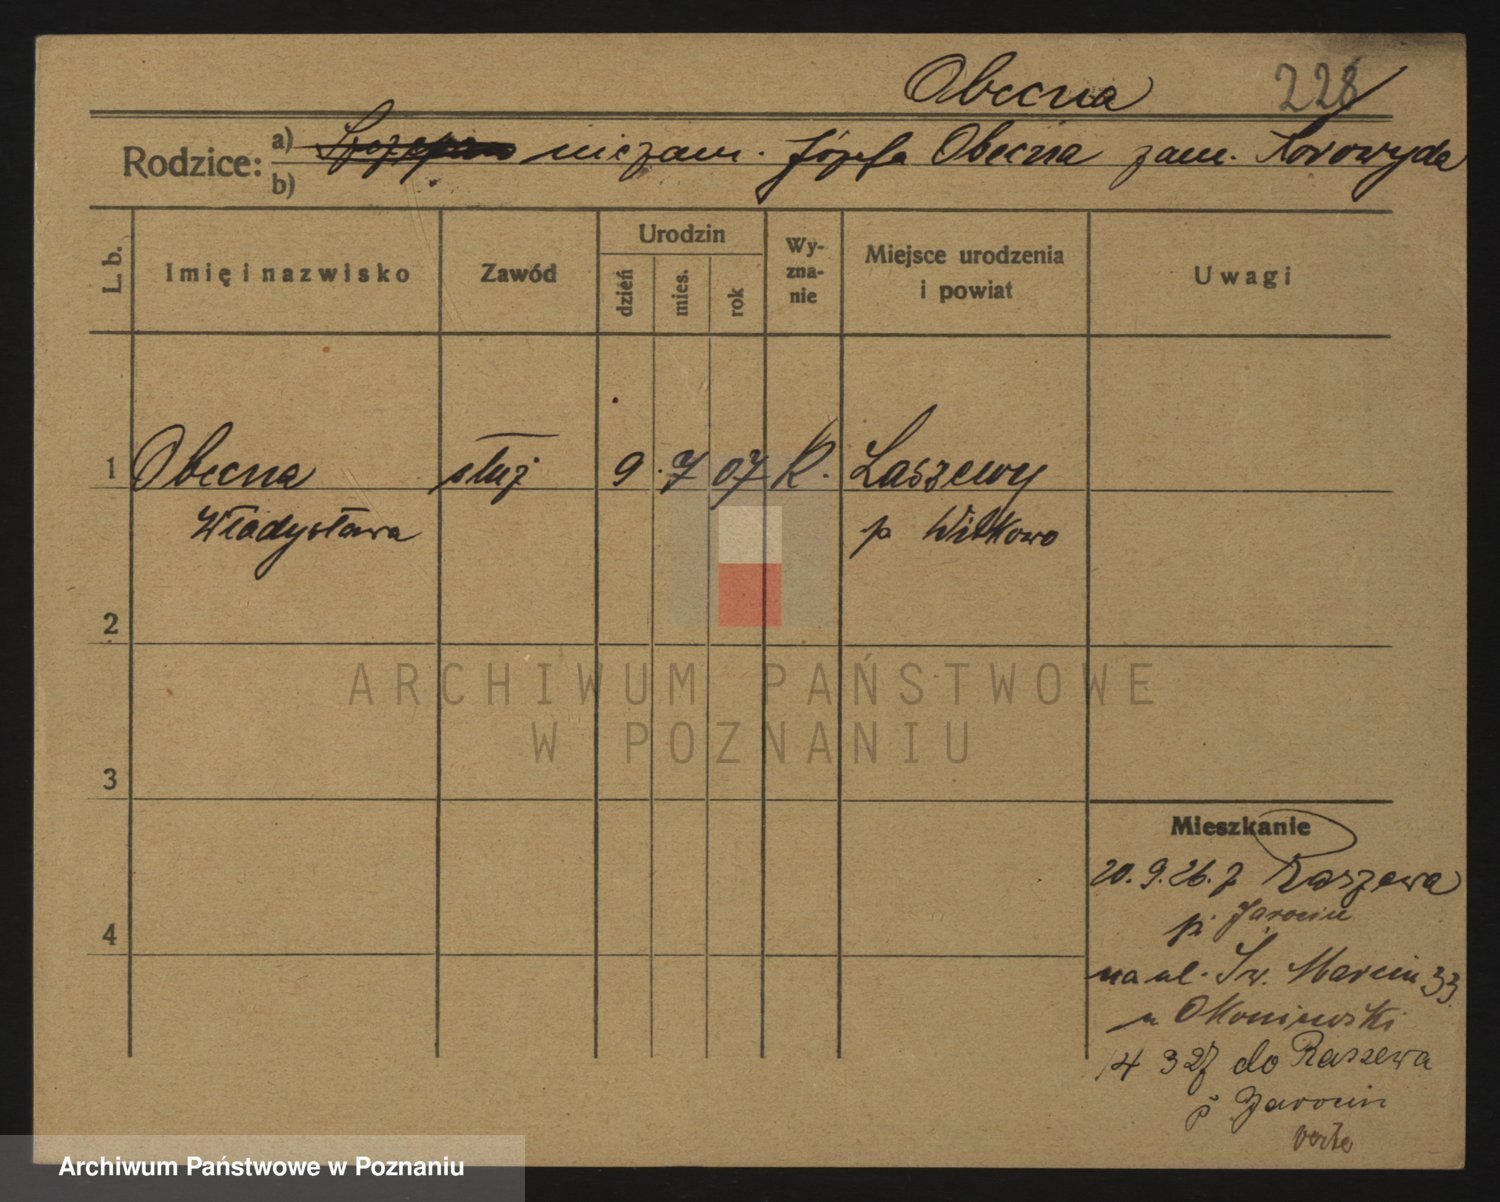 Obecna 228
Rodzice: a) Szczepan niezam. Józefa Obecna zam. Korowyda
b)
L. b. Imię i nazwisko Zawód Urodzin dzień mies. rok Wyznanie Miejsce urodzenia i powiat Uwagi
1 Obecna służ 9. 7 07 K. Laszewy
Władysława p Witkowo
2
ARCHIWUM PAŃSTWOWE
W POZNANIU
3
Mieszkanie
20.9.26. z Raszewa
p. Jarocin
4
na ul. Św. Marcin 33
u Okoniewski
14 3 27 do Raszewa
p Jarocin
verte
Archiwum Państwowe w Poznaniu